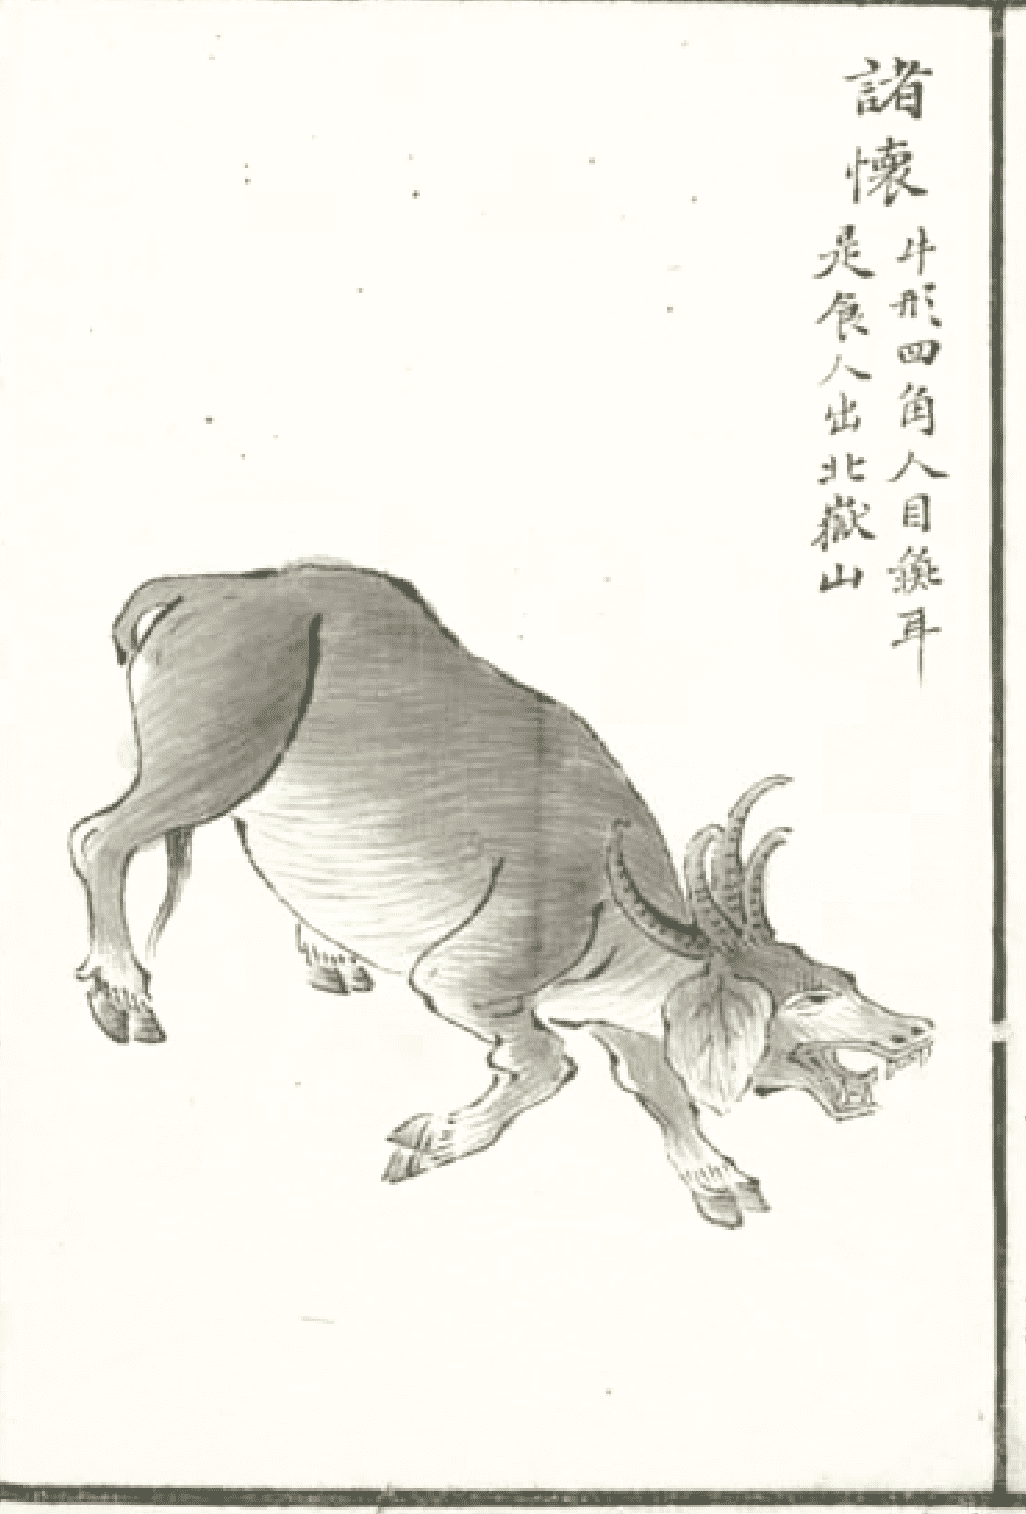 諸懷
牛形四角人目彘耳
是食人出北嶽山